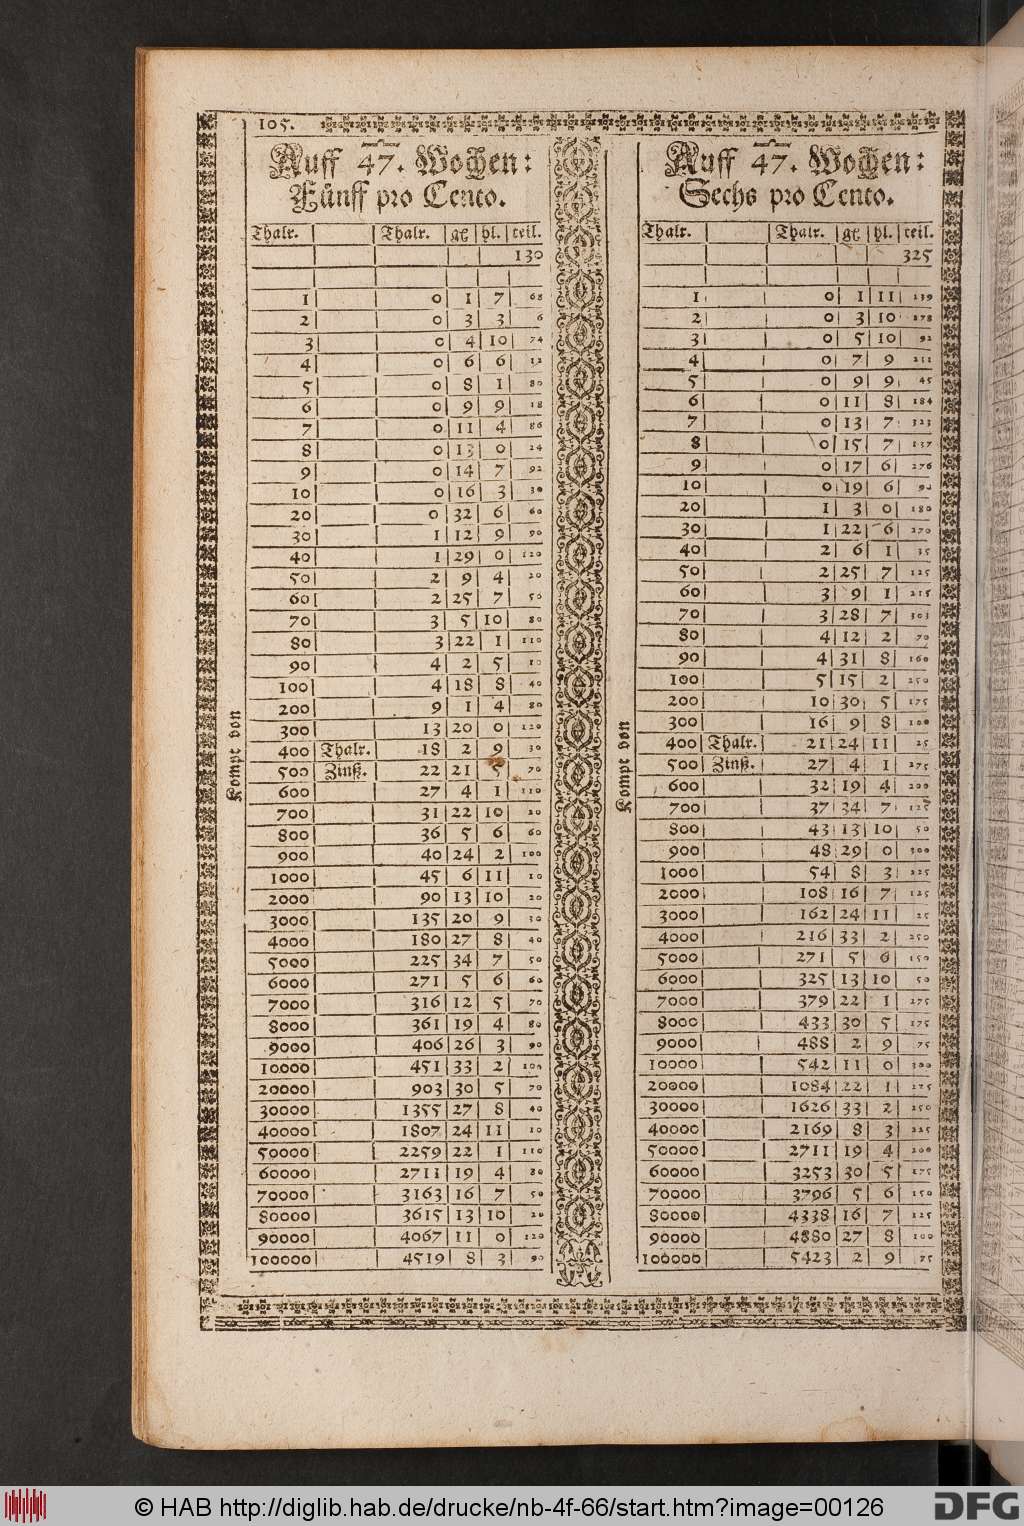 105.
Auff 47. Wochen:
Fünff pro Cento.
Thalr. Thalr. gℓ hl. teil.
130
1 0 1 7 68
2 0 3 3 6
3 0 4 10 74
4 0 6 6 12
5 0 8 1 80
6 0 9 9 18
7 0 11 4 86
8 0 13 0 24
9 0 14 7 92
10 0 16 3 30
20 0 32 6 60
30 1 12 9 90
40 1 29 0 120
50 2 9 4 20
60 2 25 7 50
70 3 5 10 80
80 3 22 1 110
90 4 2 5 10
100 4 18 8 40
200 9 1 4 80
300 13 20 0 120
400 Thalr. 18 2 9 30
500 Zinß. 22 21 5 70
600 27 4 1 110
700 31 22 10 20
800 36 5 6 60
900 40 24 2 100
1000 45 6 11 10
2000 90 13 10 20
3000 135 20 9 30
4000 180 27 8 40
5000 225 34 7 50
6000 271 5 6 60
7000 316 12 5 70
8000 361 19 4 80
9000 406 26 3 90
10000 451 33 2 100
20000 903 30 5 70
30000 1355 27 8 40
40000 1807 24 11 10
50000 2259 22 1 110
60000 2711 19 4 80
70000 3163 16 7 50
80000 3615 13 10 20
90000 4067 11 0 120
100000 4519 8 3 90
Kompt von
Auff 47. Wochen:
Sechs pro Cento.
Thalr. Thalr. gℓ hl. teil.
325
1 0 1 11 139
2 0 3 10 278
3 0 5 10 92
4 0 7 9 211
5 0 9 9 45
6 0 11 8 184
7 0 13 7 323
8 0 15 7 137
9 0 17 6 276
10 0 19 6 90
20 1 3 0 180
30 1 22 6 270
40 2 6 1 35
50 2 25 7 125
60 3 9 1 215
70 3 28 7 303
80 4 12 2 70
90 4 31 8 160
100 5 15 2 250
200 10 30 5 175
300 16 9 8 100
400 Thalr. 21 24 11 25
500 Zinß. 27 4 1 275
600 32 19 4 200
700 37 34 7 125
800 43 13 10 50
900 48 29 0 300
1000 54 8 3 225
2000 108 16 7 125
3000 162 24 11 25
4000 216 33 2 250
5000 271 5 6 150
6000 325 13 10 50
7000 379 22 1 275
8000 433 30 5 175
9000 488 2 9 75
10000 542 11 0 300
20000 1084 22 1 275
30000 1626 33 2 250
40000 2169 8 3 225
50000 2711 19 4 200
60000 3253 30 5 175
70000 3796 5 6 150
80000 4338 16 7 125
90000 4880 27 8 100
100000 5423 2 9 75
Kompt von
© HAB http://diglib.hab.de/drucke/nb-4f-66/start.htm?image=00126
DFG